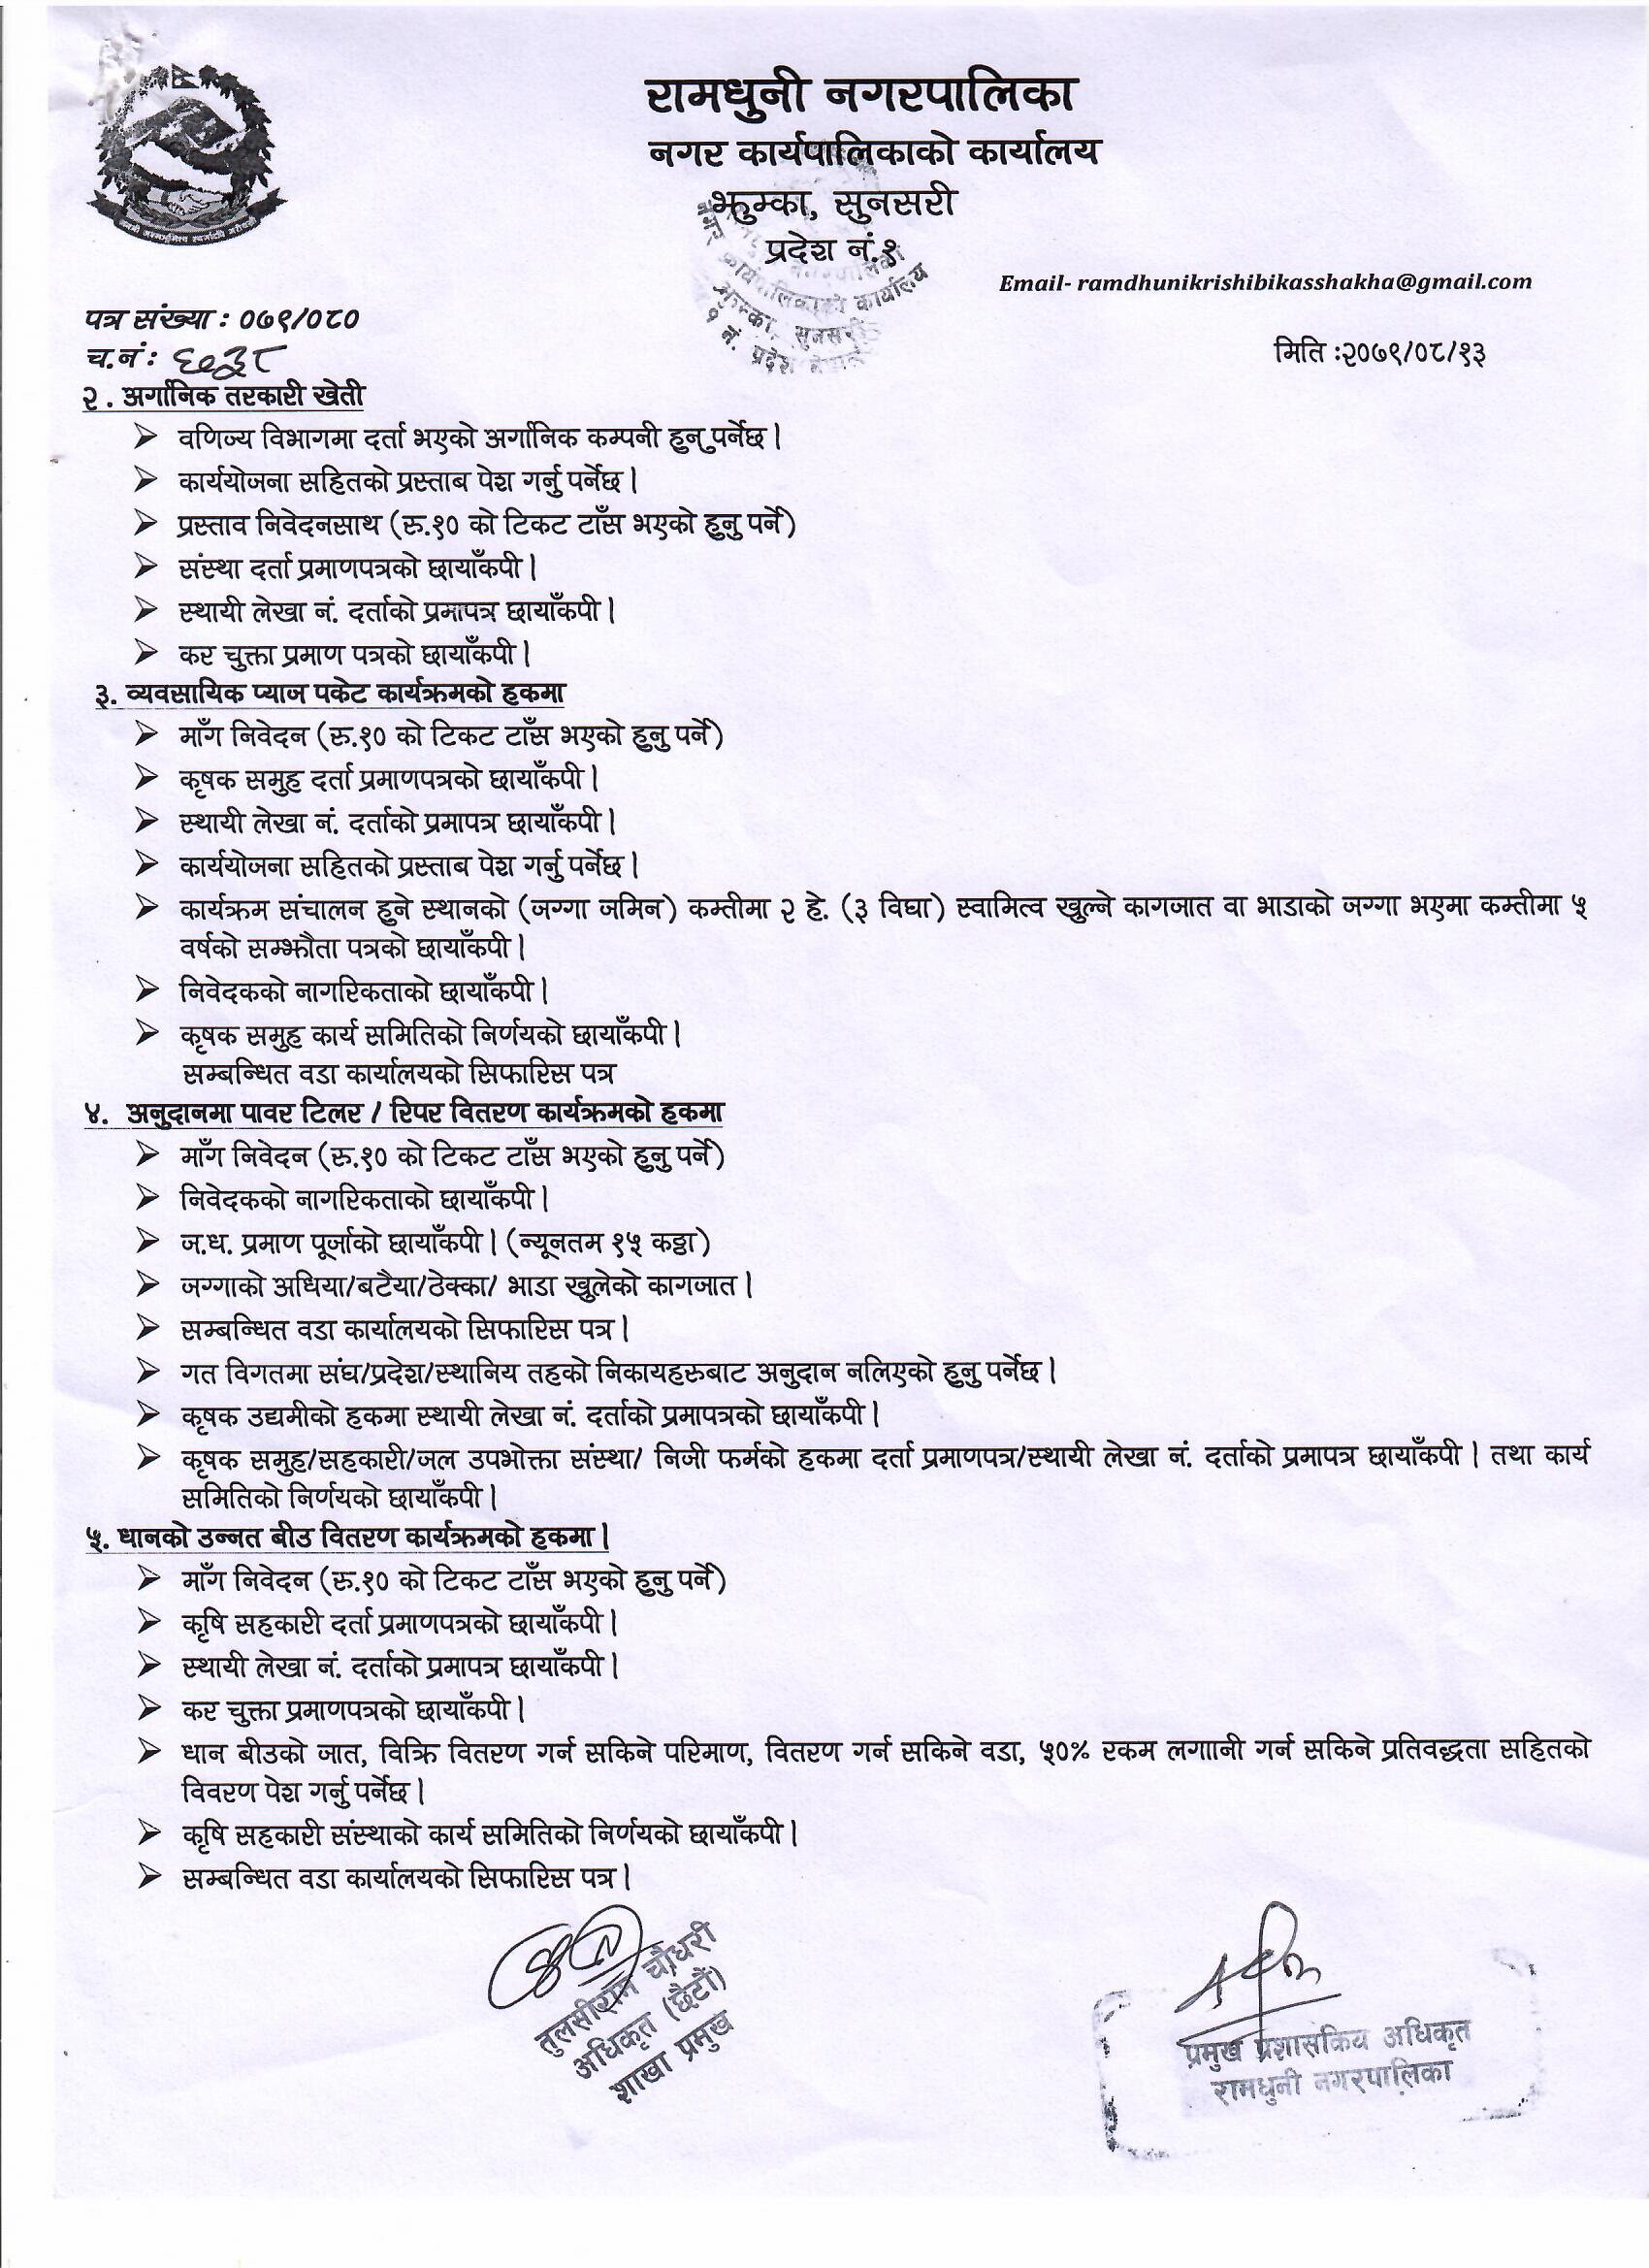 रामधुनी नगरपालिका
नगर कार्यपालिकाको कार्यालय
झुम्का, सुनसरी
प्रदेश नं.१
Email- ramdhunikrishibikasshakha@gmail.com
पत्र संख्या : ०७९/०८०
च.नं :
मिति :२०७९/०८/१३
२ . अर्गानिक तरकारी खेती
➢ वणिज्य विभागमा दर्ता भएको अर्गानिक कम्पनी हुनु पर्नेछ |
➢ कार्ययोजना सहितको प्रस्ताब पेश गर्नु पर्नेछ |
➢ प्रस्ताव निवेदनसाथ (रु.१० को टिकट टाँस भएको हुनु पर्ने)
➢ संस्था दर्ता प्रमाणपत्रको छायाँकपी |
➢ स्थायी लेखा नं. दर्ताको प्रमापत्र छायाँकपी |
➢ कर चुक्ता प्रमाण पत्रको छायाँकपी |
३. व्यवसायिक प्याज पकेट कार्यक्रमको हकमा
➢ माँग निवेदन (रु.१० को टिकट टाँस भएको हुनु पर्ने)
➢ कृषक समुह दर्ता प्रमाणपत्रको छायाँकपी |
➢ स्थायी लेखा नं. दर्ताको प्रमापत्र छायाँकपी |
➢ कार्ययोजना सहितको प्रस्ताब पेश गर्नु पर्नेछ |
➢ कार्यक्रम संचालन हुने स्थानको (जग्गा जमिन) कम्तीमा २ हे. (३ विघा) स्वामित्व खुल्ने कागजात वा भाडाको जग्गा भएमा कम्तीमा ५
वर्षको सम्झौता पत्रको छायाँकपी |
➢ निवेदकको नागरिकताको छायाँकपी |
➢ कृषक समुह कार्य समितिको निर्णयको छायाँकपी |
सम्बन्धित वडा कार्यालयको सिफारिस पत्र
४. अनुदानमा पावर टिलर / रिपर वितरण कार्यक्रमको हकमा
➢ माँग निवेदन (रु.१० को टिकट टाँस भएको हुनु पर्ने)
➢ निवेदकको नागरिकताको छायाँकपी |
➢ ज.ध. प्रमाण पूर्जाको छायाँकपी | (न्यूनतम १५ कठ्ठा)
➢ जग्गाको अधिया/बटैया/ठेक्का/ भाडा खुलेको कागजात |
➢ सम्बन्धित वडा कार्यालयको सिफारिस पत्र |
➢ गत विगतमा संघ/प्रदेश/स्थानिय तहको निकायहरुबाट अनुदान नलिएको हुनु पर्नेछ |
➢ कृषक उद्यमीको हकमा स्थायी लेखा नं. दर्ताको प्रमापत्रको छायाँकपी |
➢ कृषक समुह/सहकारी/जल उपभोक्ता संस्था/ निजी फर्मको हकमा दर्ता प्रमाणपत्र/स्थायी लेखा नं. दर्ताको प्रमापत्र छायाँकपी | तथा कार्य
समितिको निर्णयको छायाँकपी |
५. धानको उन्नत बीउ वितरण कार्यक्रमको हकमा |
➢ माँग निवेदन (रु.१० को टिकट टाँस भएको हुनु पर्ने)
➢ कृषि सहकारी दर्ता प्रमाणपत्रको छायाँकपी |
➢ स्थायी लेखा नं. दर्ताको प्रमापत्र छायाँकपी |
➢ कर चुक्ता प्रमाणपत्रको छायाँकपी |
➢ धान बीउको जात, विक्रि वितरण गर्न सकिने परिमाण, वितरण गर्न सकिने वडा, ५०% रकम लगाानी गर्न सकिने प्रतिवद्धता सहितको
विवरण पेश गर्नु पर्नेछ |
➢ कृषि सहकारी संस्थाको कार्य समितिको निर्णयको छायाँकपी |
➢ सम्बन्धित वडा कार्यालयको सिफारिस पत्र |
तुलसीराम चौधरी
अधिकृत (छैटौं)
शाखा प्रमुख
प्रमुख प्रशासकिय अधिकृत
रामधुनी नगरपालिका